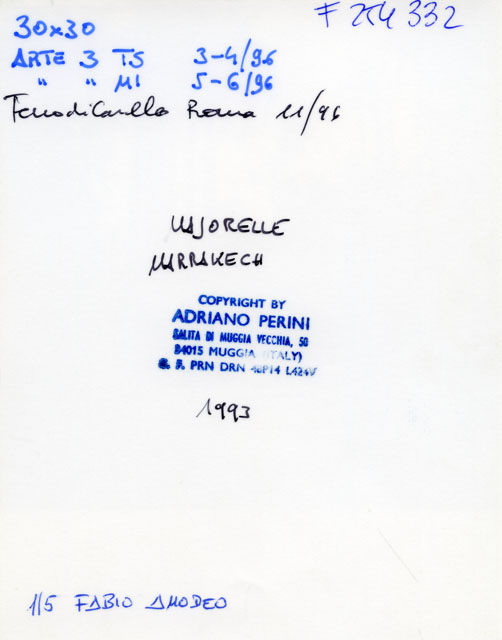 F 254 332
30x30
ARTE 3 TS 3-4/96
" " MI 5-6/96
Roma 11/96
MAJORELLE
MARRAKECH
COPYRIGHT BY
ADRIANO PERINI
SALITA DI MUGGIA VECCHIA, 50
34015 MUGGIA (ITALY)
C. F. PRN DRN 46P14 L424V
1993
1/5 FABIO AMODEO